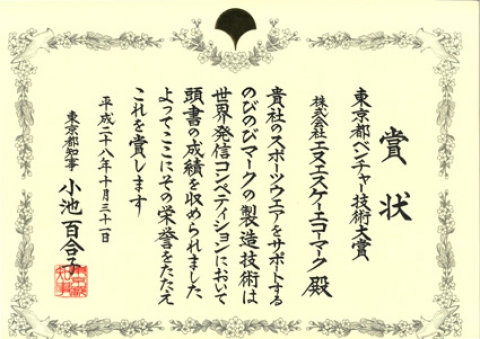 賞状
東京都ベンチャー技術大賞
株式会社エヌエスケーエコーマーク 殿
貴社のスポーツウェアをサポートする
のびのびマークの製造技術は
世界発信コンペティションにおいて
頭書の成績を収められました
よってここにその栄誉をたたえ
これを賞します
平成二十八年十月三十一日
東京都知事 小池百合子